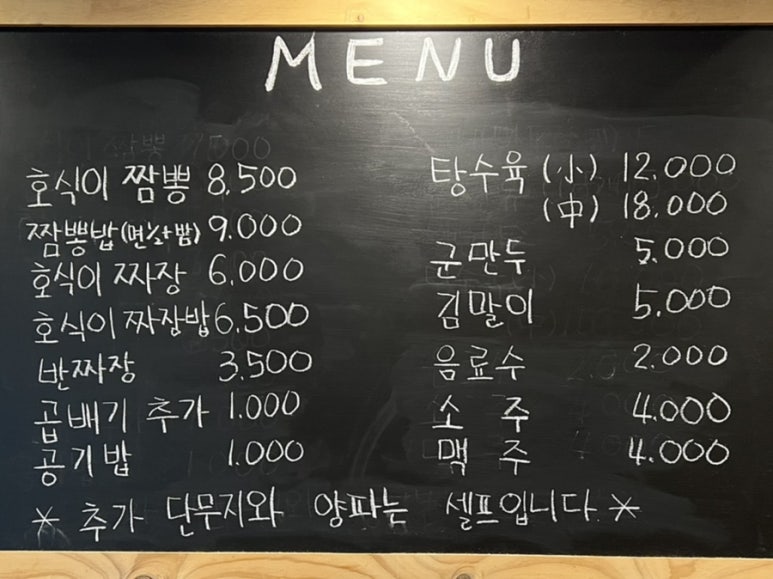 MENU
호식이 짬뽕 8.500
짬뽕밥(면½+밥) 9.000
호식이 짜장 6.000
호식이 짜장밥 6.500
반짜장 3.500
곱배기 추가 1.000
공기밥 1.000
탕수육 (小) 12.000
(中) 18.000
군만두 5.000
김말이 5.000
음료수 2.000
소 주 4.000
맥 주 4.000
* 추가 단무지와 양파는 셀프입니다.*